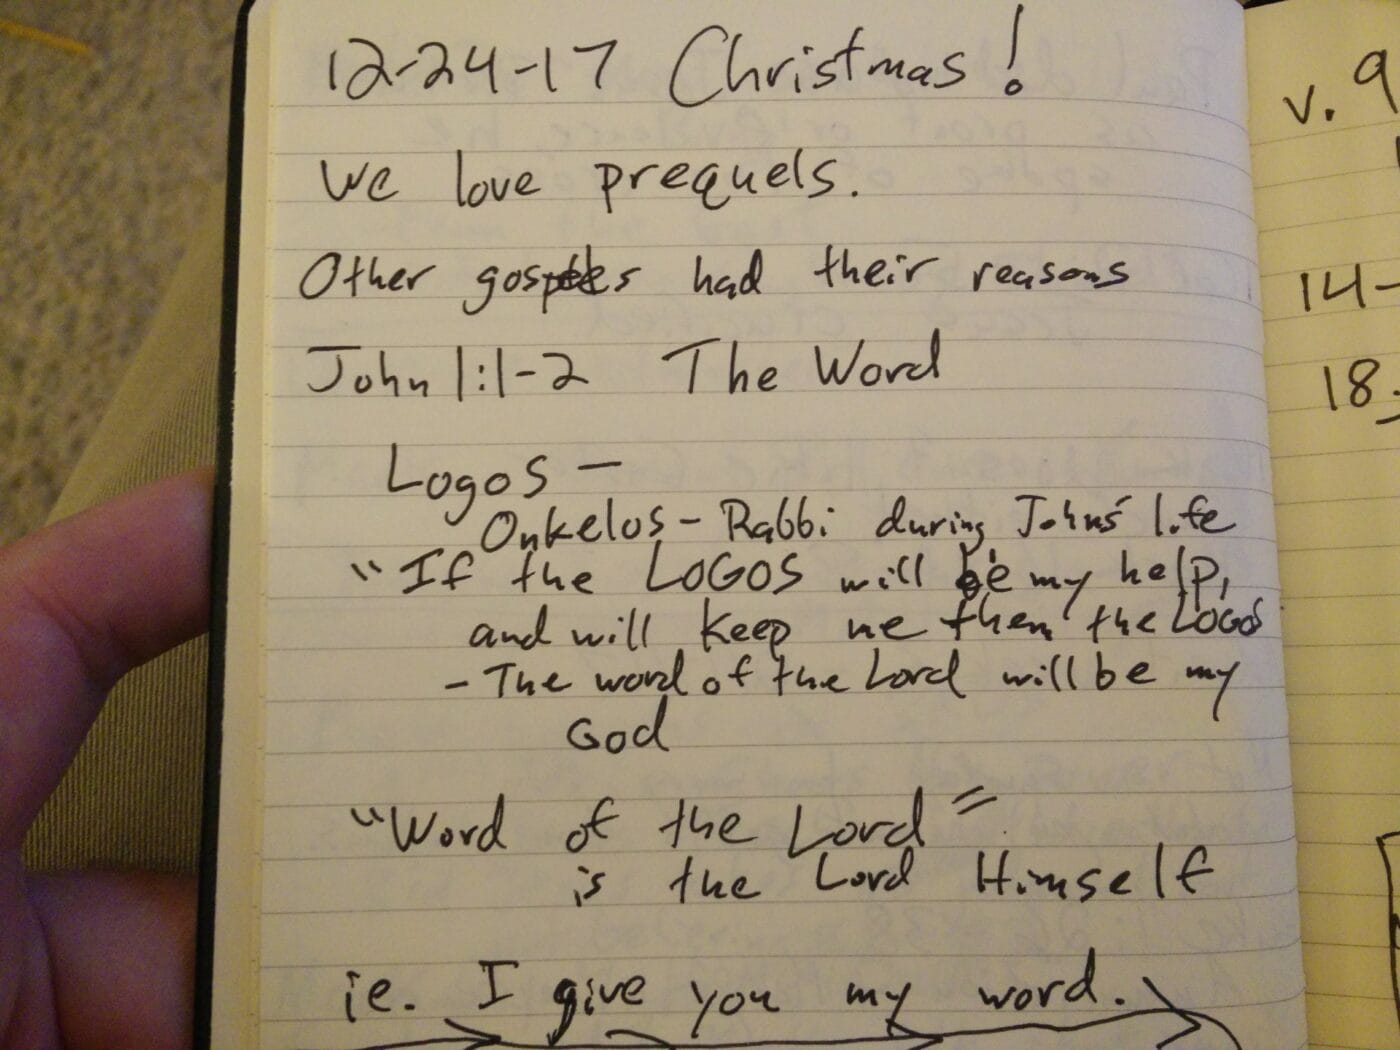 12-24-17 Christmas!
We love prequels.
Other gospels had their reasons
John 1:1-2 The Word
Logos -
Onkelos - Rabbi during Johns' life
"If the LOGOS will be my help,
and will keep me then the LOGOS
- The word of the Lord will be my
God
"Word of the Lord"
is the Lord Himself
ie. I give you my word.
v. 9
14-
18